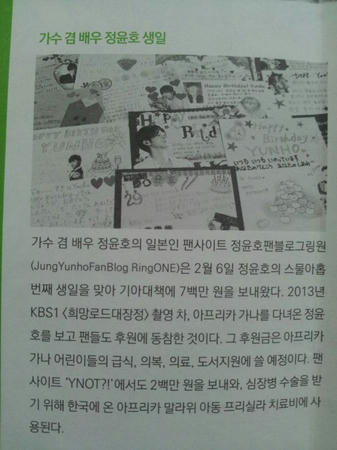 가수 겸 배우 정윤호 생일
Happy Birthday! Yunho
Happy
Birthday
YUNHO
29
가수 겸 배우 정윤호의 일본인 팬사이트 정윤호팬블로그링원
(JungYunhoFanBlog RingONE)은 2월 6일 정윤호의 스물아홉
번째 생일을 맞아 기아대책에 7백만 원을 보내왔다. 2013년
KBS1 <희망로드대장정> 촬영 차, 아프리카 가나를 다녀온 정윤
호를 보고 팬들도 후원에 동참한 것이다. 그 후원금은 아프리카
가나 어린이들의 급식, 의복, 의료, 도서지원에 쓸 예정이다. 팬
사이트 'YNOT?!'에서도 2백만 원을 보내와, 심장병 수술을 받
기 위해 한국에 온 아프리카 말라위 아동 프리실라 치료비에 사
용된다.